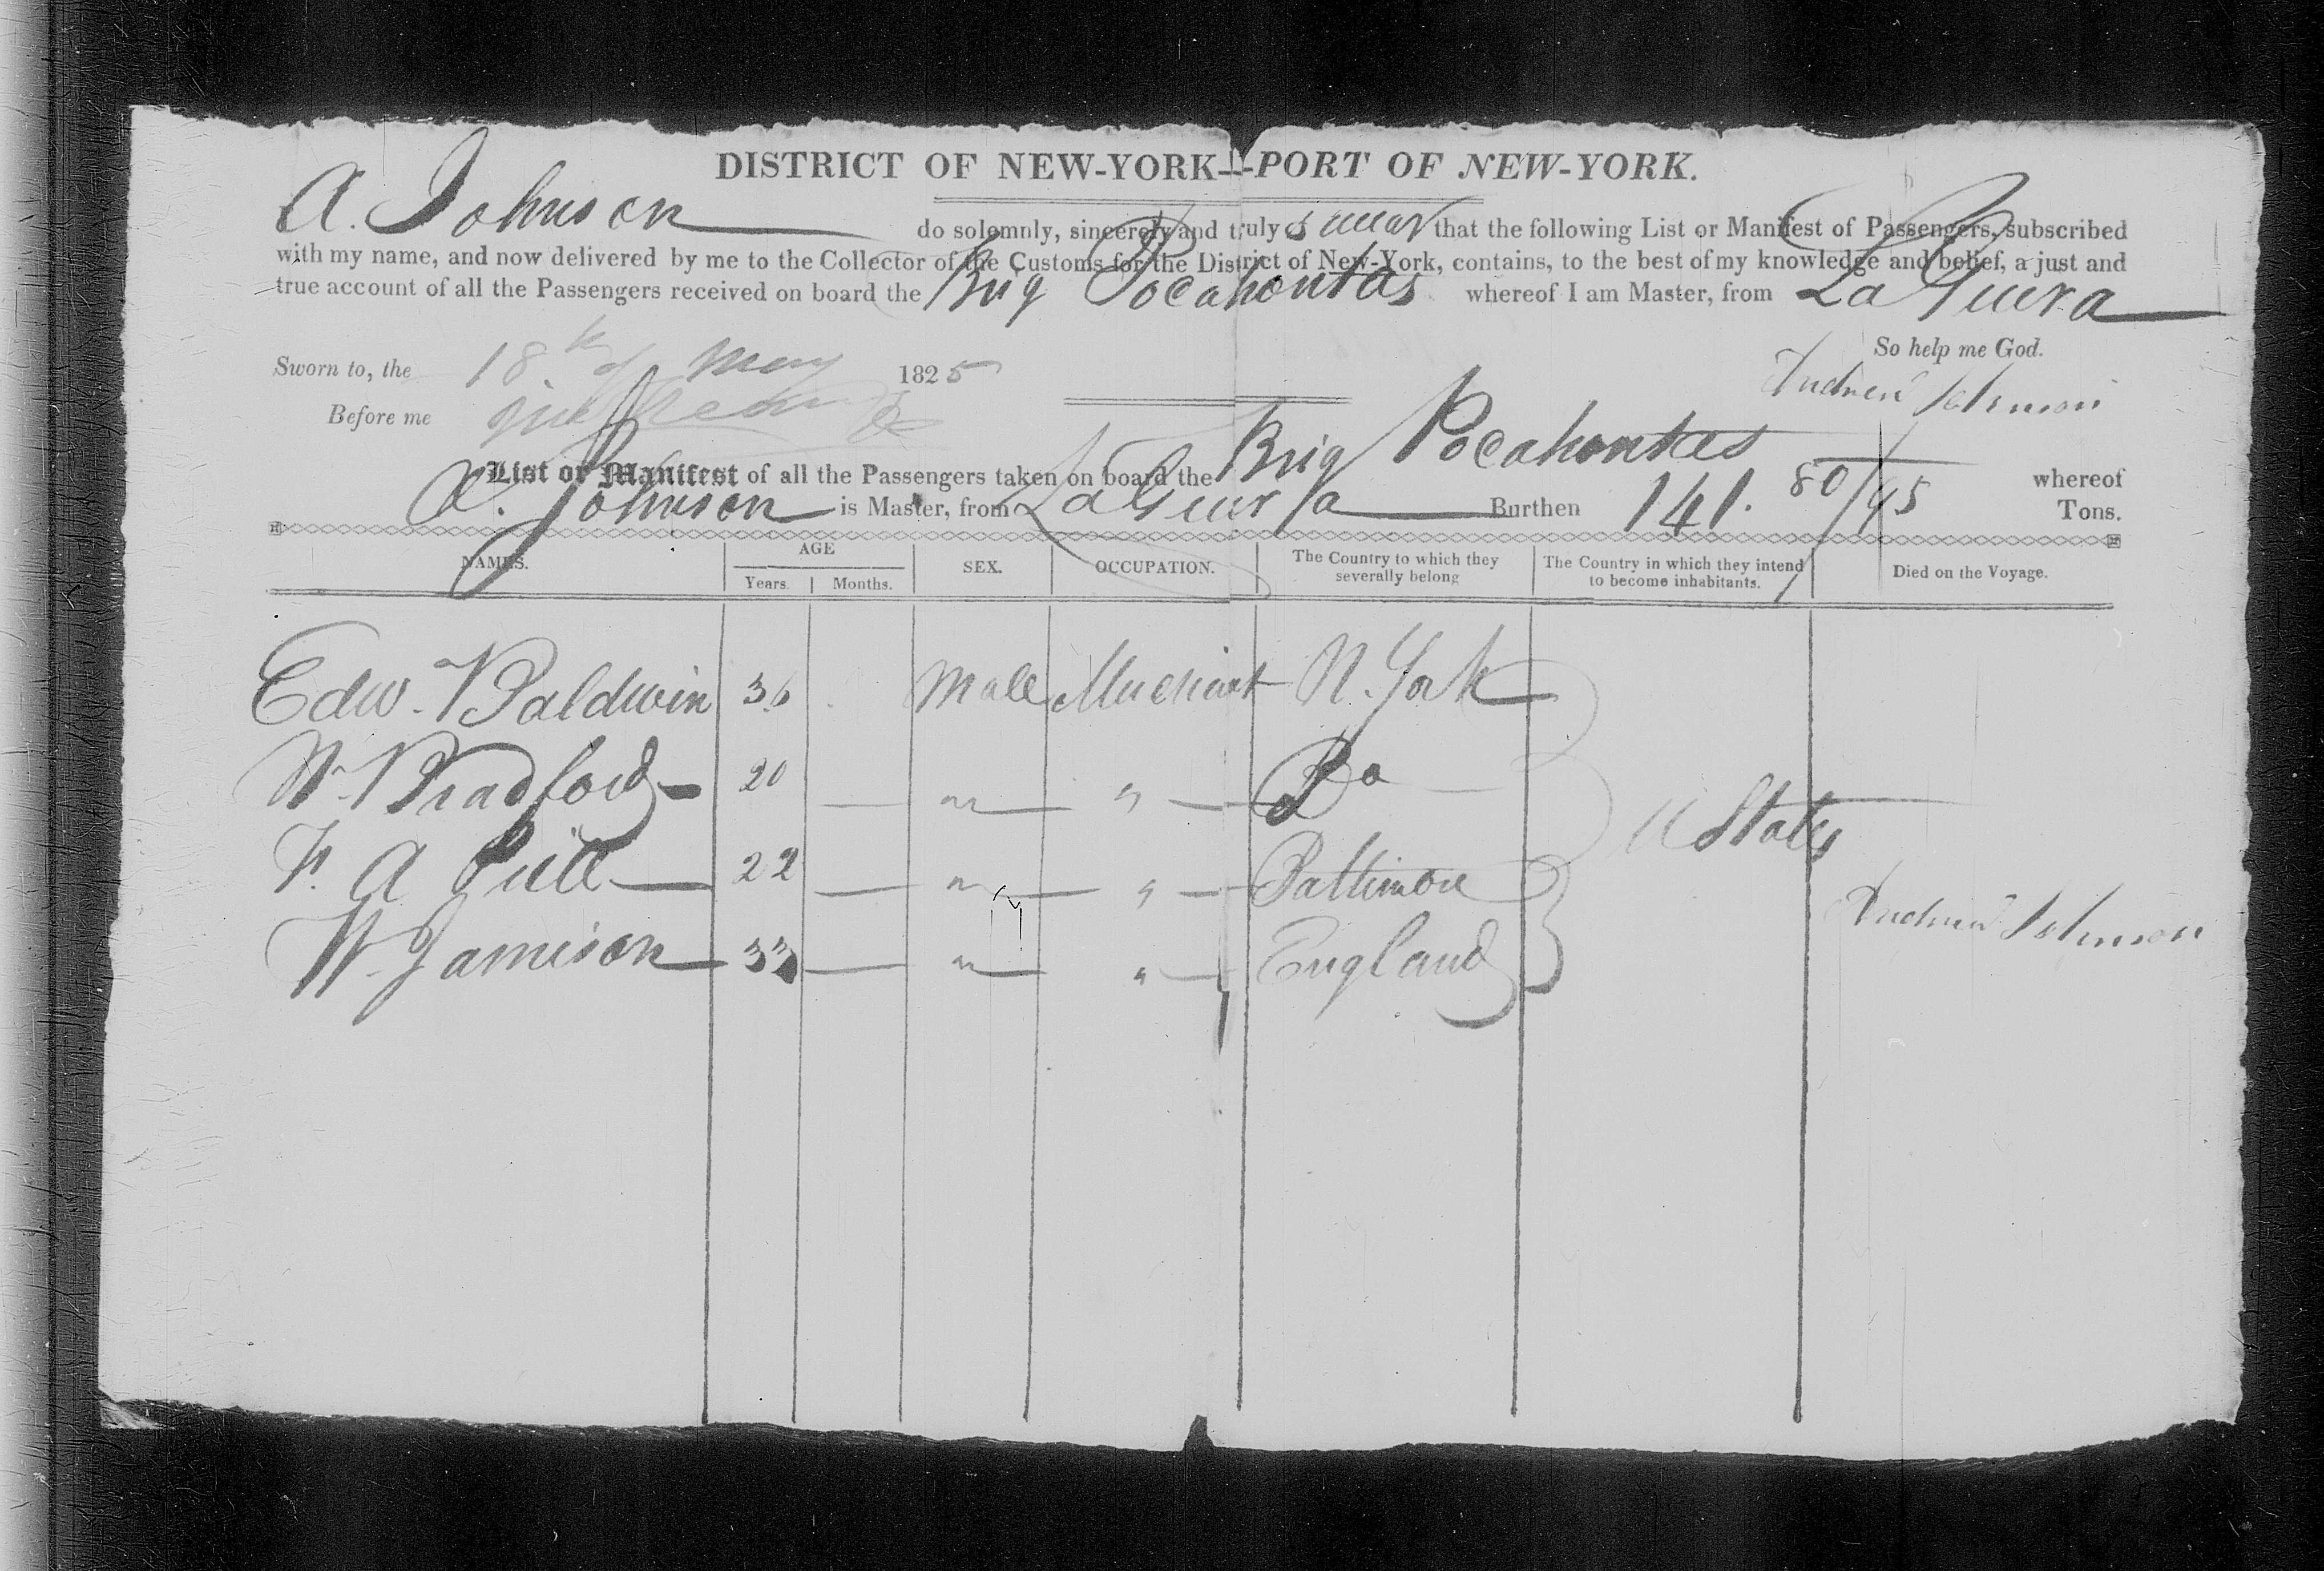 DISTRICT OF NEW-YORK--PORT OF NEW-YORK.
A. Johnson do solemnly, sincerely and truly swear that the following List or Manifest of Passengers, subscribed
with my name, and now delivered by me to the Collector of the Customs for the District of New-York, contains, to the best of my knowledge and belief, a just and
true account of all the Passengers received on board the Brig Pocahontas whereof I am Master, from La Guira
So help me God.
Sworn to, the 18th of May 1825
Andrew Johnson
Before me
List or Manifest of all the Passengers taken on board the Brig Pocahontas whereof
A. Johnson is Master, from La Guira Burthen 141. 80/95 Tons.
NAMES. AGE Years. Months. SEX. OCCUPATION. The Country to which they severally belong The Country in which they intend to become inhabitants. Died on the Voyage.
Edw. Baldwin 36 Male Merchant N. York
Wm Bradford 20 " " Do
F. A 22 " " Baltimore
U States
W. Jamison 33 " " England
Andrew Johnson